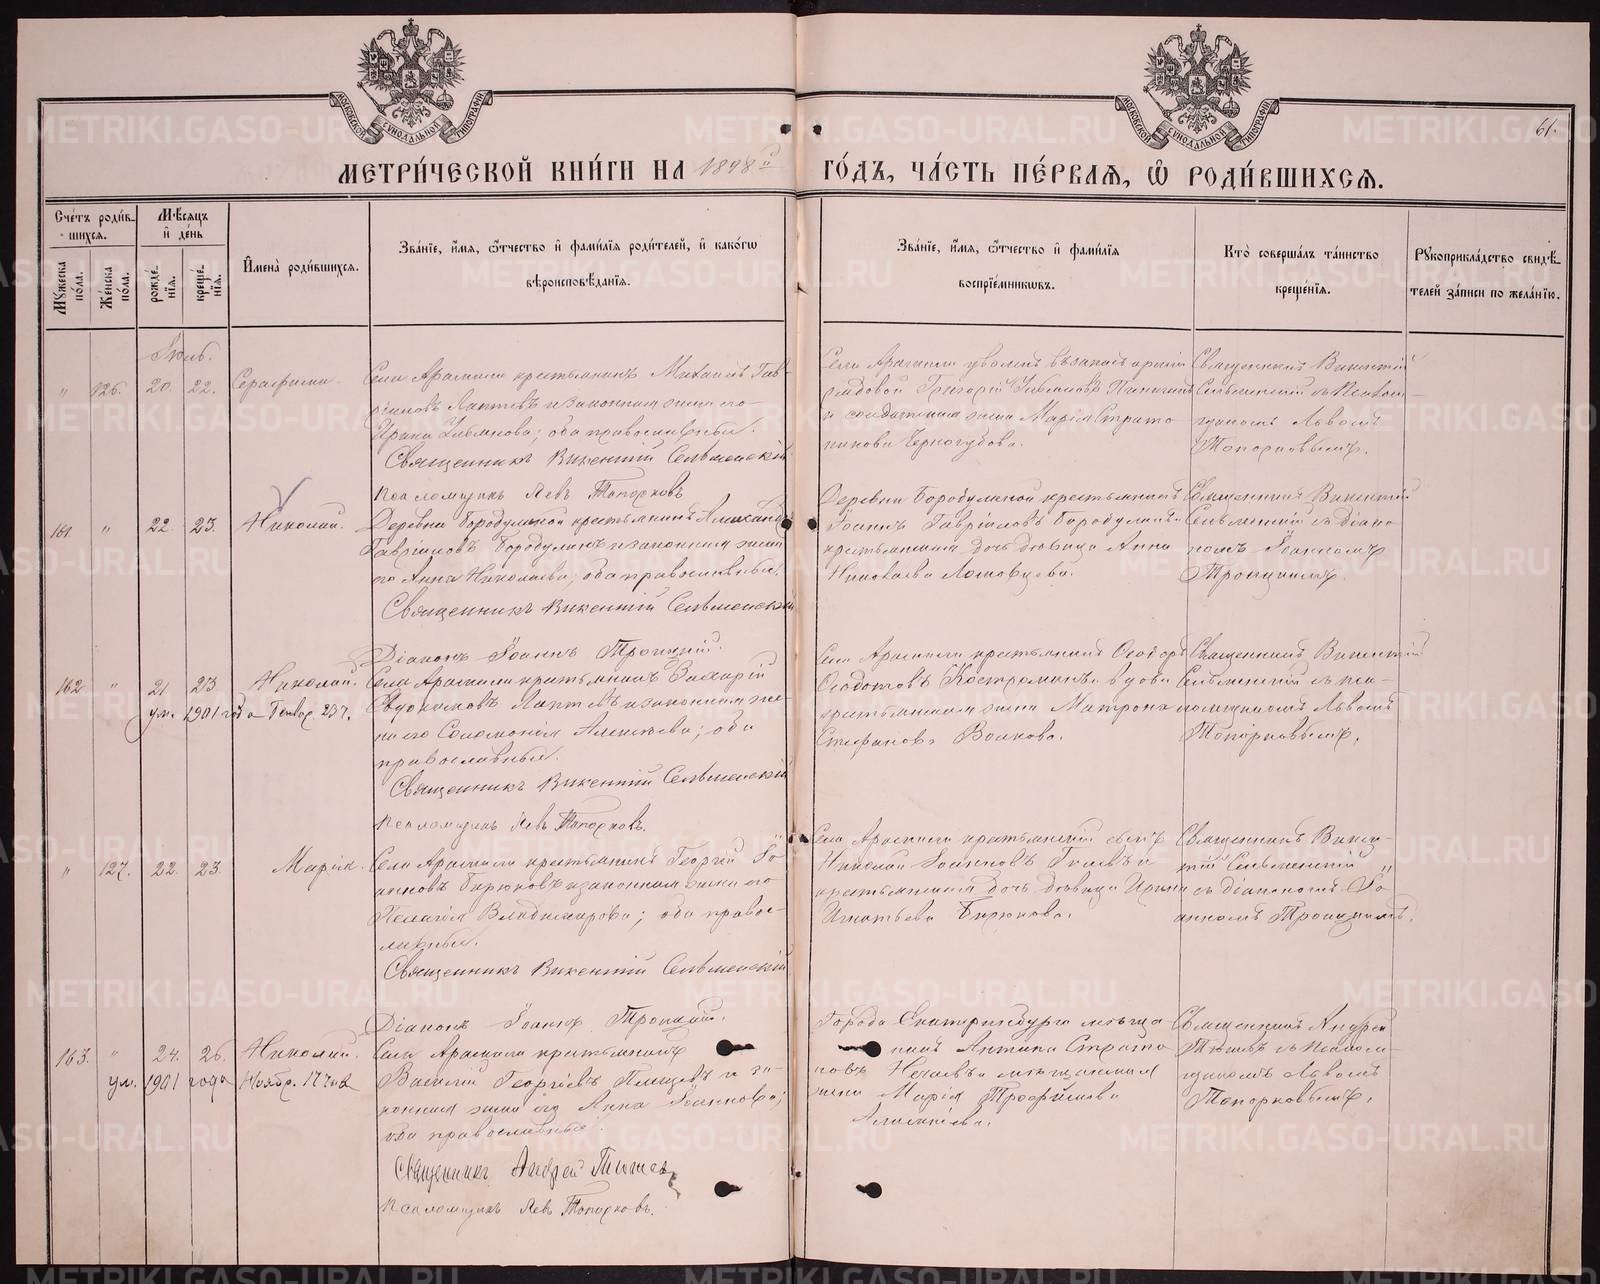 МОСКОВСКОЙ СѴНОДАЛЬНОЙ ТИПОГРАФІИ
МОСКОВСКОЙ СѴНОДАЛЬНОЙ ТИПОГРАФІИ
61.
МЕТРИ́ЧЕСКОЙ КНИ́ГИ НА 1898й ГО́ДЪ, ЧА́СТЬ ПЕ́РВАЯ, Ѡ РОДИ́ВШИХСЯ.
Сче́тъ роди́в-
шихся.
Му́жеска по́ла.
Же́нска по́ла.
Мѣ́сяцъ и де́нь
рожде́нія.
креще́нія.
Имена̀ роди́вшихся.
Зва́ніе, и́мя, ѻ́тчество и фами́лія роди́телей, и како́гѡ
вѣроисповѣ́данія.
Зва́ніе, и́мя, ѻ́тчество и фами́лія
воспріе́мникѡвъ.
Кто̀ соверша́лъ та́инство
креще́нія.
Рукоприкла́дство свидѣ́-
телей за́писи по жела́нію.
Іюль.
" 126. 20. 22. Серафима.
Села Арамили крестьянинъ Михаилъ Гав-
ріиловъ Лаптевъ и законная жена его
Ирина; оба православные.
Священникъ Викентій Сельменскій
Псаломщикъ Левъ Топорковъ
Села Арамили уволен. въ запасъ арміи
рядовой Григорій
и солдатская жена Марія Страто-
никова Черногубова.
Священникъ Викентій
Сельменскій съ псалом-
щикомъ Львомъ
Топорковымъ.
161. " 22. 23. Николай.
Деревни Бородулиной крестьянинъ Александръ
Гавріиловъ Бородулинъ и законная жена
его Анна Николаева, оба православные.
Священникъ Викентій Сельменскій
Діаконъ Іоаннъ Троицкій.
Деревни Бородулиной крестьянинъ
Іоаннъ Гавріиловъ Бородулинъ и
крестьянская дочь дѣвица Анна
Николаева
Священникъ Викентій
Сельменскій съ діако-
номъ Іоанномъ
Троицкимъ.
162 " 21. 23. Николай.
ум. 1901 года Январ. 23 ч.
Села Арамили крестьянинъ Захарій
Евдокимовъ Лаптевъ и законная же-
на его Соломонія Алексѣева; оба
православные.
Священникъ Викентій Сельменскій
Псаломщикъ Левъ Топорковъ.
Села Арамили крестьянинъ Ѳеодоръ
Ѳеодотовъ Костроминъ и вдова
крестьянская жена Матрона
Стефанова Волкова.
Священникъ Викентій
Сельменскій съ пса-
ломщикомъ Львомъ
Топорковымъ.
" 127. 22. 23. Марія.
Села Арамили крестьянинъ Георгій Іо-
анновъ Бирюковъ и законная жена его
Пелагія Владимирова; оба право-
славные.
Священникъ Викентій Сельменскій
Діаконъ Іоаннъ Троицкій.
Села Арамили крестьянскій сынъ
Николай Іоанновъ и
крестьянская дочь дѣвица Ирина
Игнатьева Бирюкова.
Священникъ Викен-
тій Сельменскій
съ діакономъ Іо-
анномъ Троицкимъ.
163. " 24. 26. Николай.
ум. 1901 года Ноябр. 17 дня
Села Арамили крестьянинъ
Василій Георгіевъ и за-
конная жена его Анна Іоаннова;
оба православные.
Священникъ Андрей
Псаломщикъ Левъ Топорковъ.
Города Екатеринбурга мѣща-
нинъ Антипа Страто-
новъ Нечаевъ и мѣщанская
жена Марія Трофимова
Алексѣева.
Священникъ Андрей
съ псалом-
щикомъ Львомъ
Топорковымъ.
METRIKI.GASO-URAL.RU